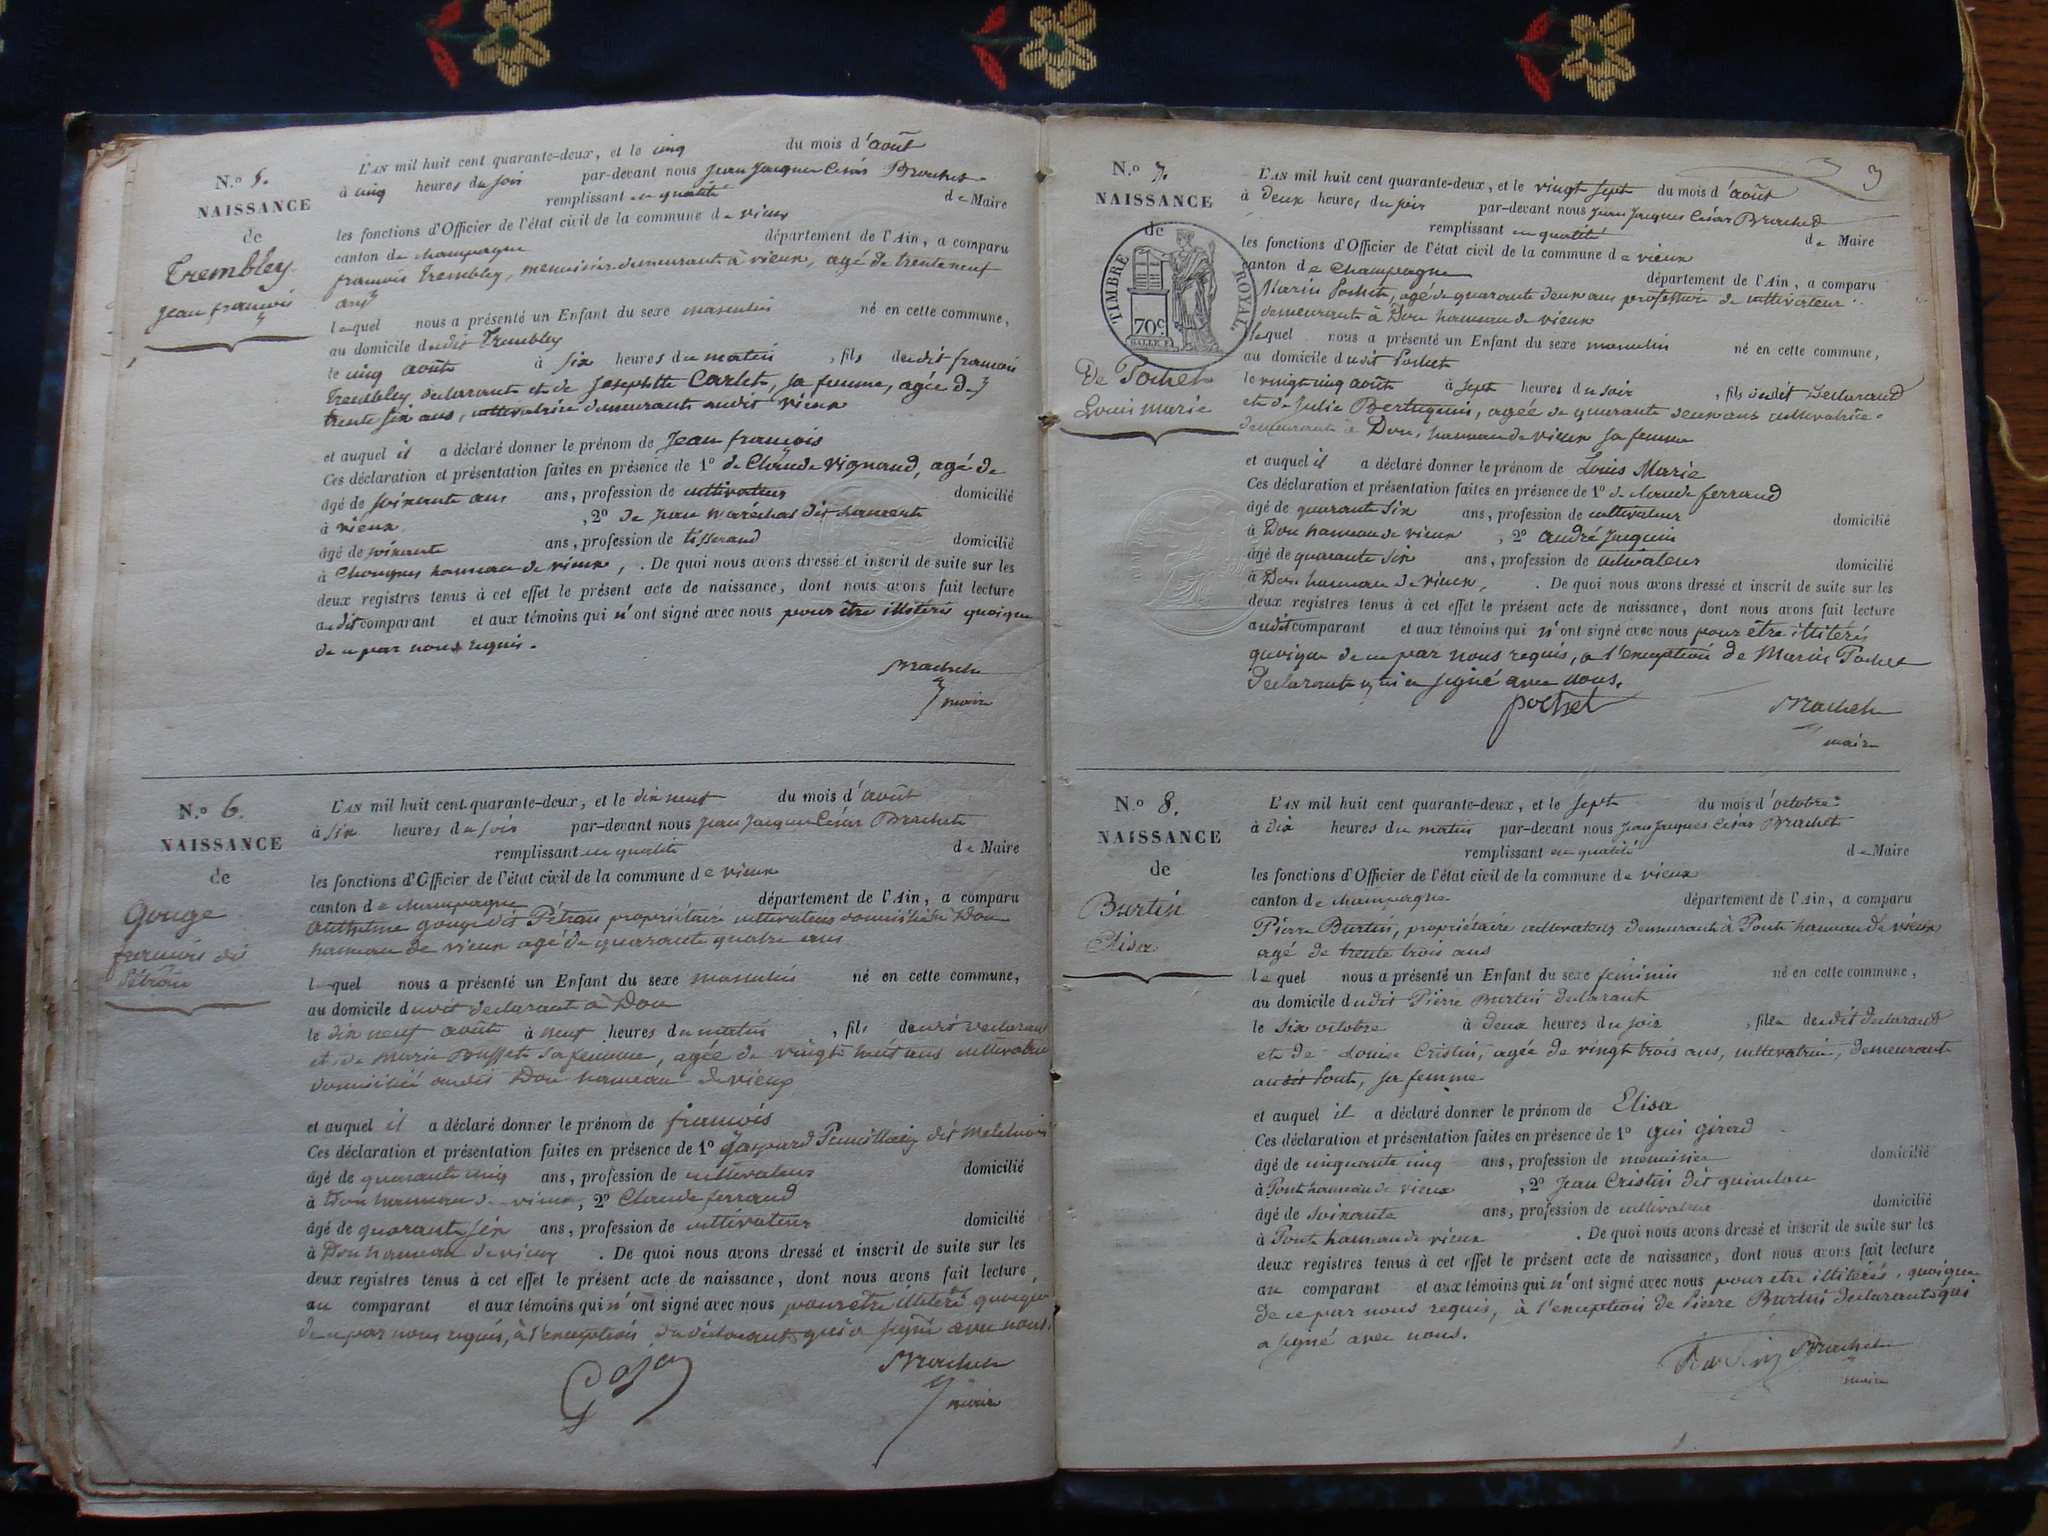 N.º 5.
NAISSANCE
de
Trembley
Jean françois
L'AN mil huit cent quarante-deux, et le cinq du mois d'août
à cinq heures du soir par-devant nous Jean Jacques César Brachet
remplissant en qualité de Maire
les fonctions d'Officier de l'état civil de la commune de vieux
canton de champagne département de l'Ain, a comparu
françois Trembley, menuisier demeurant à vieux, agé de trente neuf
ans
lequel nous a présenté un Enfant du sexe masculin né en cette commune,
au domicile dudit Trembley
le cinq août à six heures du matin, fils dudit françois
Trembley declarant et de Josephtte Carlet, sa femme, agée de
trente six ans, cultivatrice demeurant audit vieux
et auquel il a déclaré donner le prénom de Jean françois
Ces déclaration et présentation faites en présence de 1º de Claude vignaud, agé de
âgé de soixante ans ans, profession de cultivateur domicilié
à vieux, 2º de Jean maréchal dit
âgé de soixante ans, profession de tisserand domicilié
à hameau de vieux, . De quoi nous avons dressé et inscrit de suite sur les
deux registres tenus à cet effet le présent acte de naissance, dont nous avons fait lecture
audit comparant et aux témoins qui n'ont signé avec nous pour être illiterés quoique
de ce par nous requis.
Brachet
maire
N.º 6.
NAISSANCE
de
Gouge
françois dit
Pétran
L'AN mil huit cent quarante-deux, et le dix neuf du mois d'août
à six heures du soir par-devant nous Jean Jacques César Brachet
remplissant en qualité de Maire
les fonctions d'Officier de l'état civil de la commune de vieux
canton de champagne département de l'Ain, a comparu
Anthelme gouge dit Pétran propriétaire cultivateur domicilié à Don
hameau de vieux agé de quarante quatre ans
lequel nous a présenté un Enfant du sexe masculin né en cette commune,
au domicile dudit declarant à Don
le dix neuf août à neuf heures du matin, fils dudit declarant
et de Marie Busset sa femme, agée de vingt huit ans cultivatrice
domicilié audit Don hameau de vieux
et auquel il a déclaré donner le prénom de françois
Ces déclaration et présentation faites en présence de 1º Gaspard dit
âgé de quarante cinq ans, profession de cultivateur domicilié
à Don hameau de vieux, 2º Claude ferrand
âgé de quarante six ans, profession de cultivateur domicilié
à Don hameau de vieux . De quoi nous avons dressé et inscrit de suite sur les
deux registres tenus à cet effet le présent acte de naissance, dont nous avons fait lecture
au comparant et aux témoins qui n'ont signé avec nous pour être illiteré quoique
de ce par nous requis, à l'exception du déclarant qui a signé avec nous.
Brachet
maire
3
N.º 7.
NAISSANCE
de
TIMBRE ROYAL.
70c
De Pochet
Louis Marie
L'AN mil huit cent quarante-deux, et le vingt sept du mois d'août
à deux heures du soir par-devant nous Jean Jacques César Brachet
remplissant en qualité de Maire
les fonctions d'Officier de l'état civil de la commune de vieux
canton de Champagne département de l'Ain, a comparu
Marin Pochet, agé de quarante deux ans profession de cultivateur
demeurant à Don hameau de vieux
lequel nous a présenté un Enfant du sexe masculin né en cette commune,
au domicile dudit Pochet
le vingt cinq août à sept heures du soir, fils dudit Declarand
et de Julie, agée de quarante deux ans cultivatrice
demeurant à Don, hameau de vieux sa femme
et auquel il a déclaré donner le prénom de Louis Marie
Ces déclaration et présentation faites en présence de 1º de claude ferrand
âgé de quarante six ans, profession de cultivateur domicilié
à Don hameau de vieux, 2º andré Jacquin
âgé de quarante six ans, profession de cultivateur domicilié
à Don hameau de vieux, . De quoi nous avons dressé et inscrit de suite sur les
deux registres tenus à cet effet le présent acte de naissance, dont nous avons fait lecture
audit comparant et aux témoins qui n'ont signé avec nous pour être illiterés
quoique de ce par nous requis, a l'exception de Marin Pochet
Declarant qui a signé avec nous.
pochet
Brachet
maire
N.º 8.
NAISSANCE
de
Burtin
Elisa
L'AN mil huit cent quarante-deux, et le sept du mois d'octobre
à dix heures du matin par-devant nous Jean Jacques César Brachet
remplissant en qualité de Maire
les fonctions d'Officier de l'état civil de la commune de vieux
canton de champagne département de l'Ain, a comparu
Pierre Burtin, propriétaire cultivateur demeurant à Pont hameau de vieux
agé de trente trois ans
lequel nous a présenté un Enfant du sexe feminin né en cette commune,
au domicile dudit Pierre Burtin declarant
le six octobre à deux heures du soir, fille dudit declarand
et de Louise Cristin, agée de vingt trois ans, cultivatrice, demeurant
audit Pont, sa femme
et auquel il a déclaré donner le prénom de Elisa
Ces déclaration et présentation faites en présence de 1º gui girerd
âgé de cinquante cinq ans, profession de menuisier domicilié
à Pont hameau de vieux, 2º Jean Cristin dit
âgé de soixante ans, profession de cultivateur domicilié
à Pont hameau de vieux . De quoi nous avons dressé et inscrit de suite sur les
deux registres tenus à cet effet le présent acte de naissance, dont nous avons fait lecture
au comparant et aux témoins qui n'ont signé avec nous pour etre illiterés, quoique
de ce par nous requis, à l'exception de Pierre Burtin declarant qui
a signé avec nous.
Brachet
maire